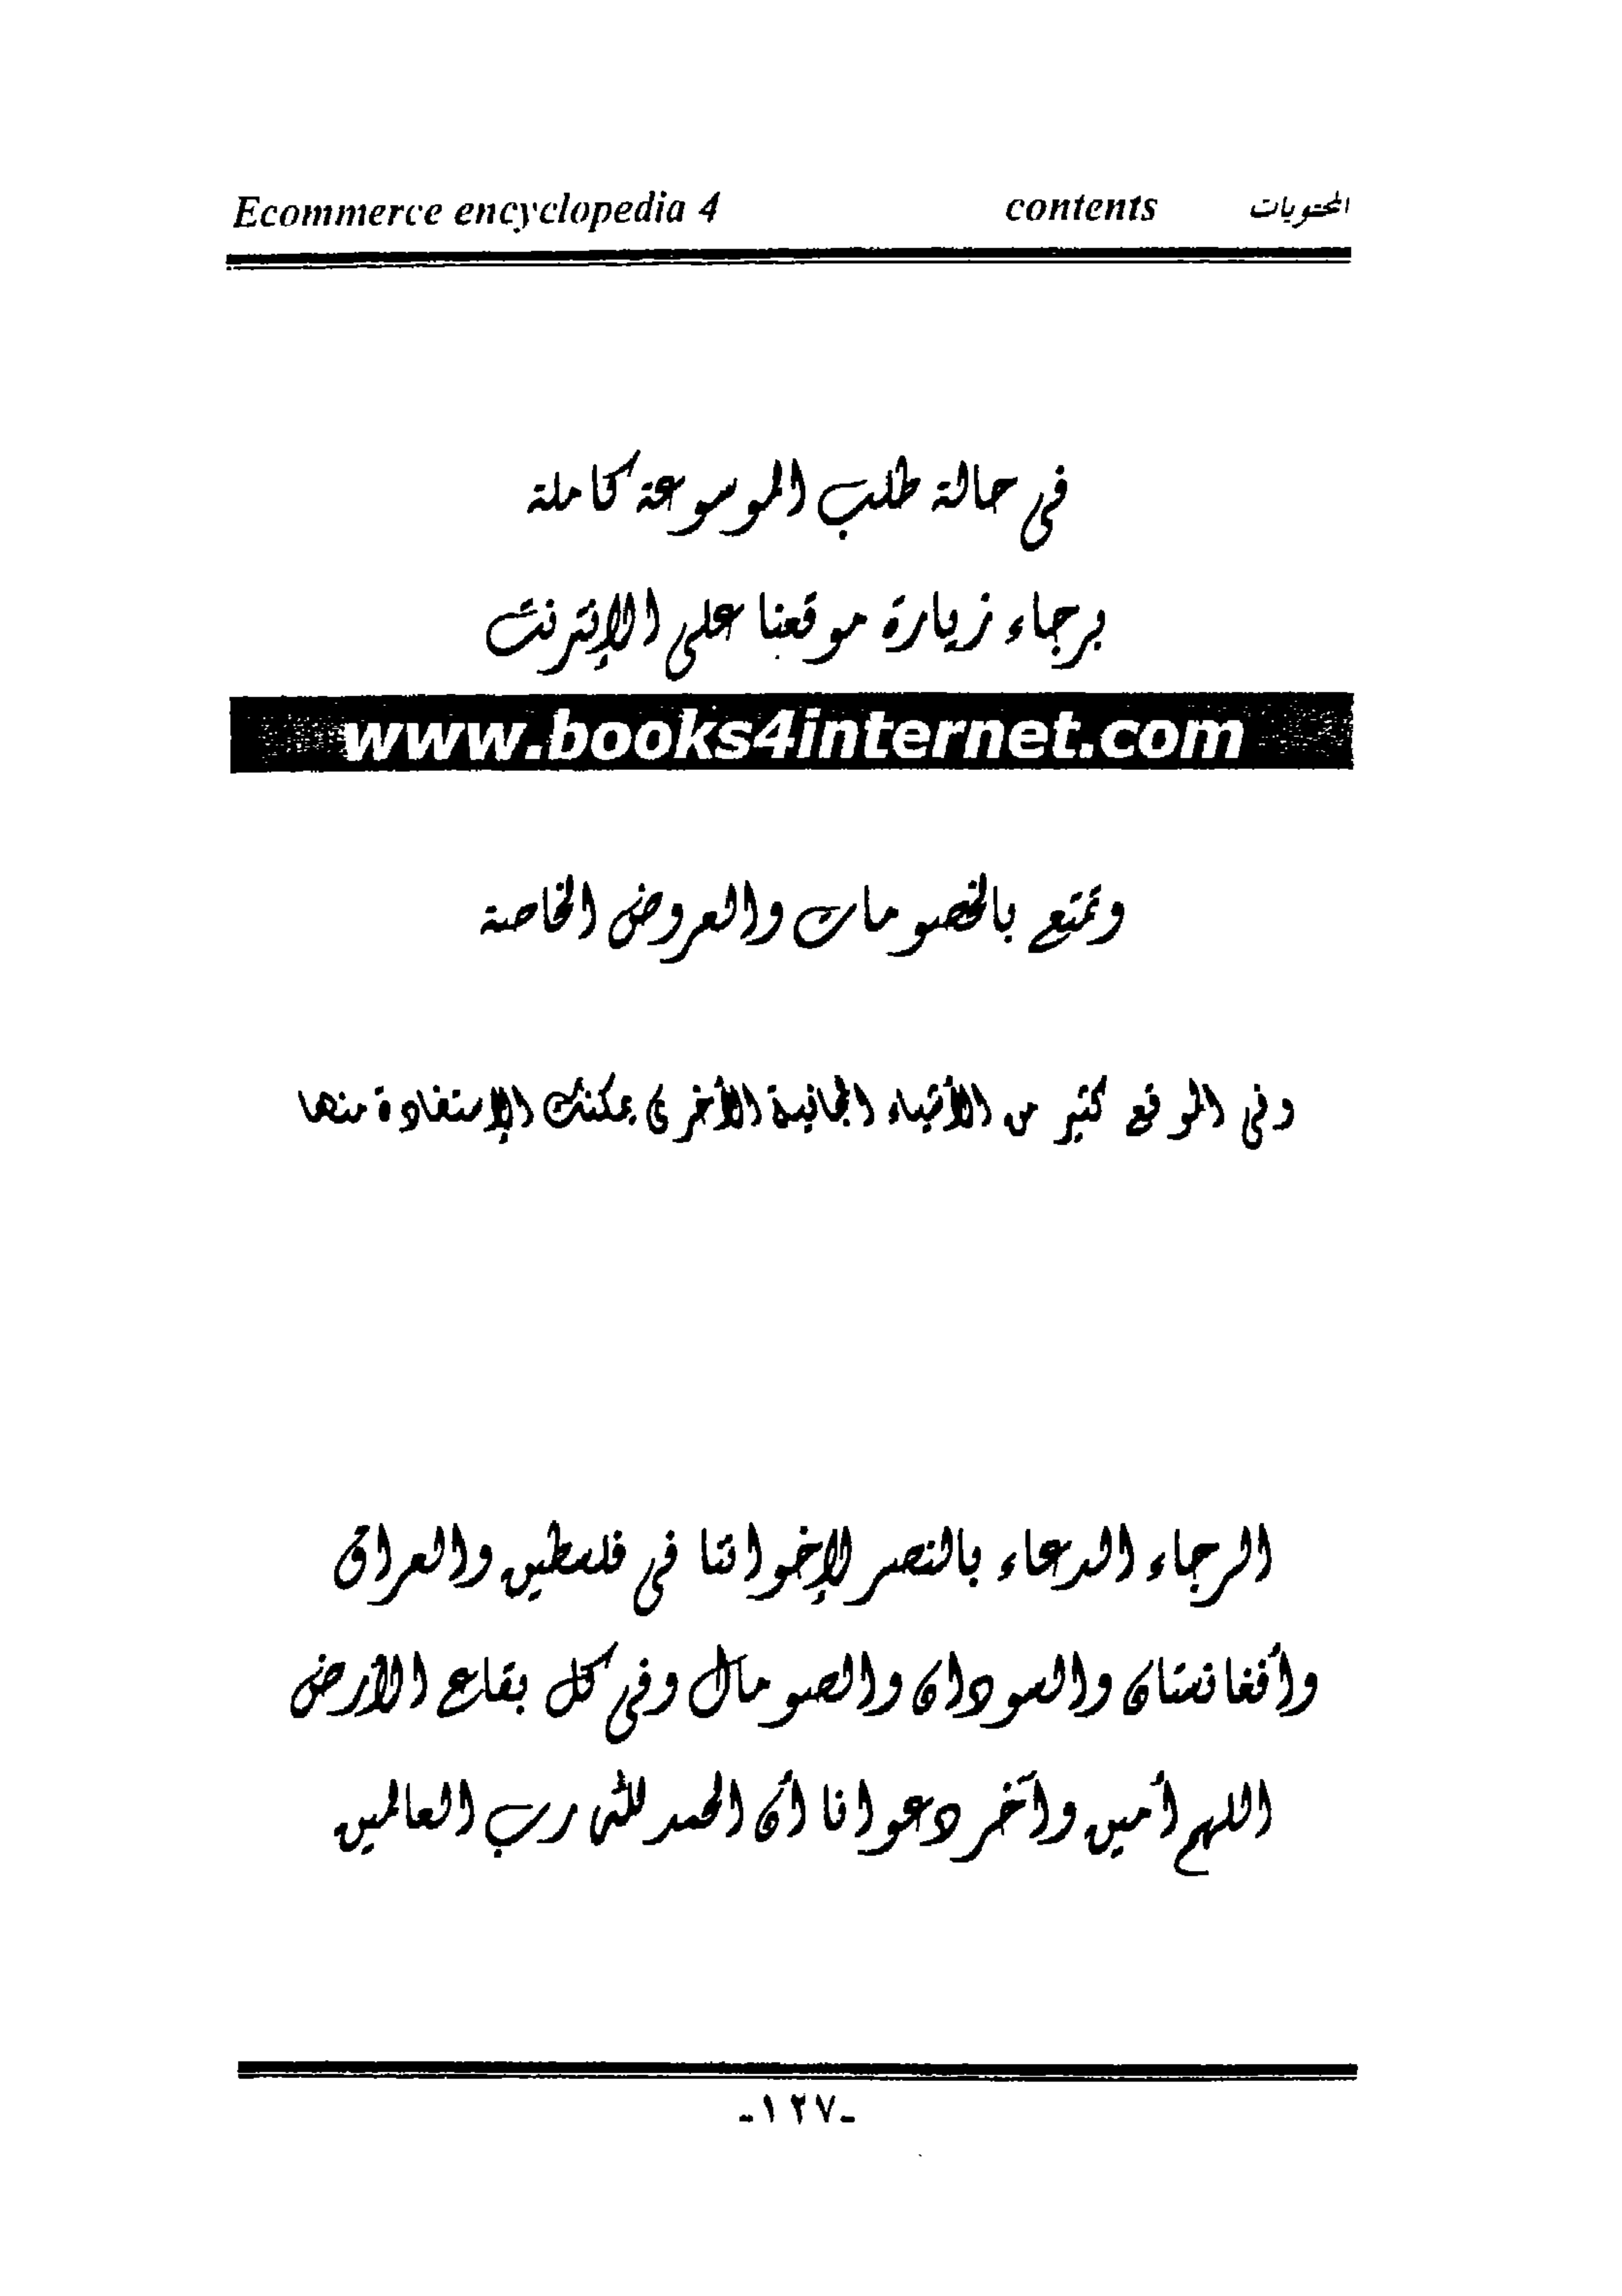 Ecommerce encyclopedia 4 contents المحتويات
فى حالة طلب الموسوعة كاملة
برجاء زيارة موقعنا على الإنترنت
www.books4internet.com
وتمتع بالخصومات والعروض الخاصة
وفى الموقع كثير من الأشياء المجانية الأخرى يمكنك الإستفادة منها
الرجاء الدعاء بالنصر لإخواننا فى فلسطين والعراق
وأفغانستان والسودان والصومال وفى كل بقاع الأرض
اللهم أمين وآخر دعوانا أن الحمد لله رب العالمين
-١٢٧-